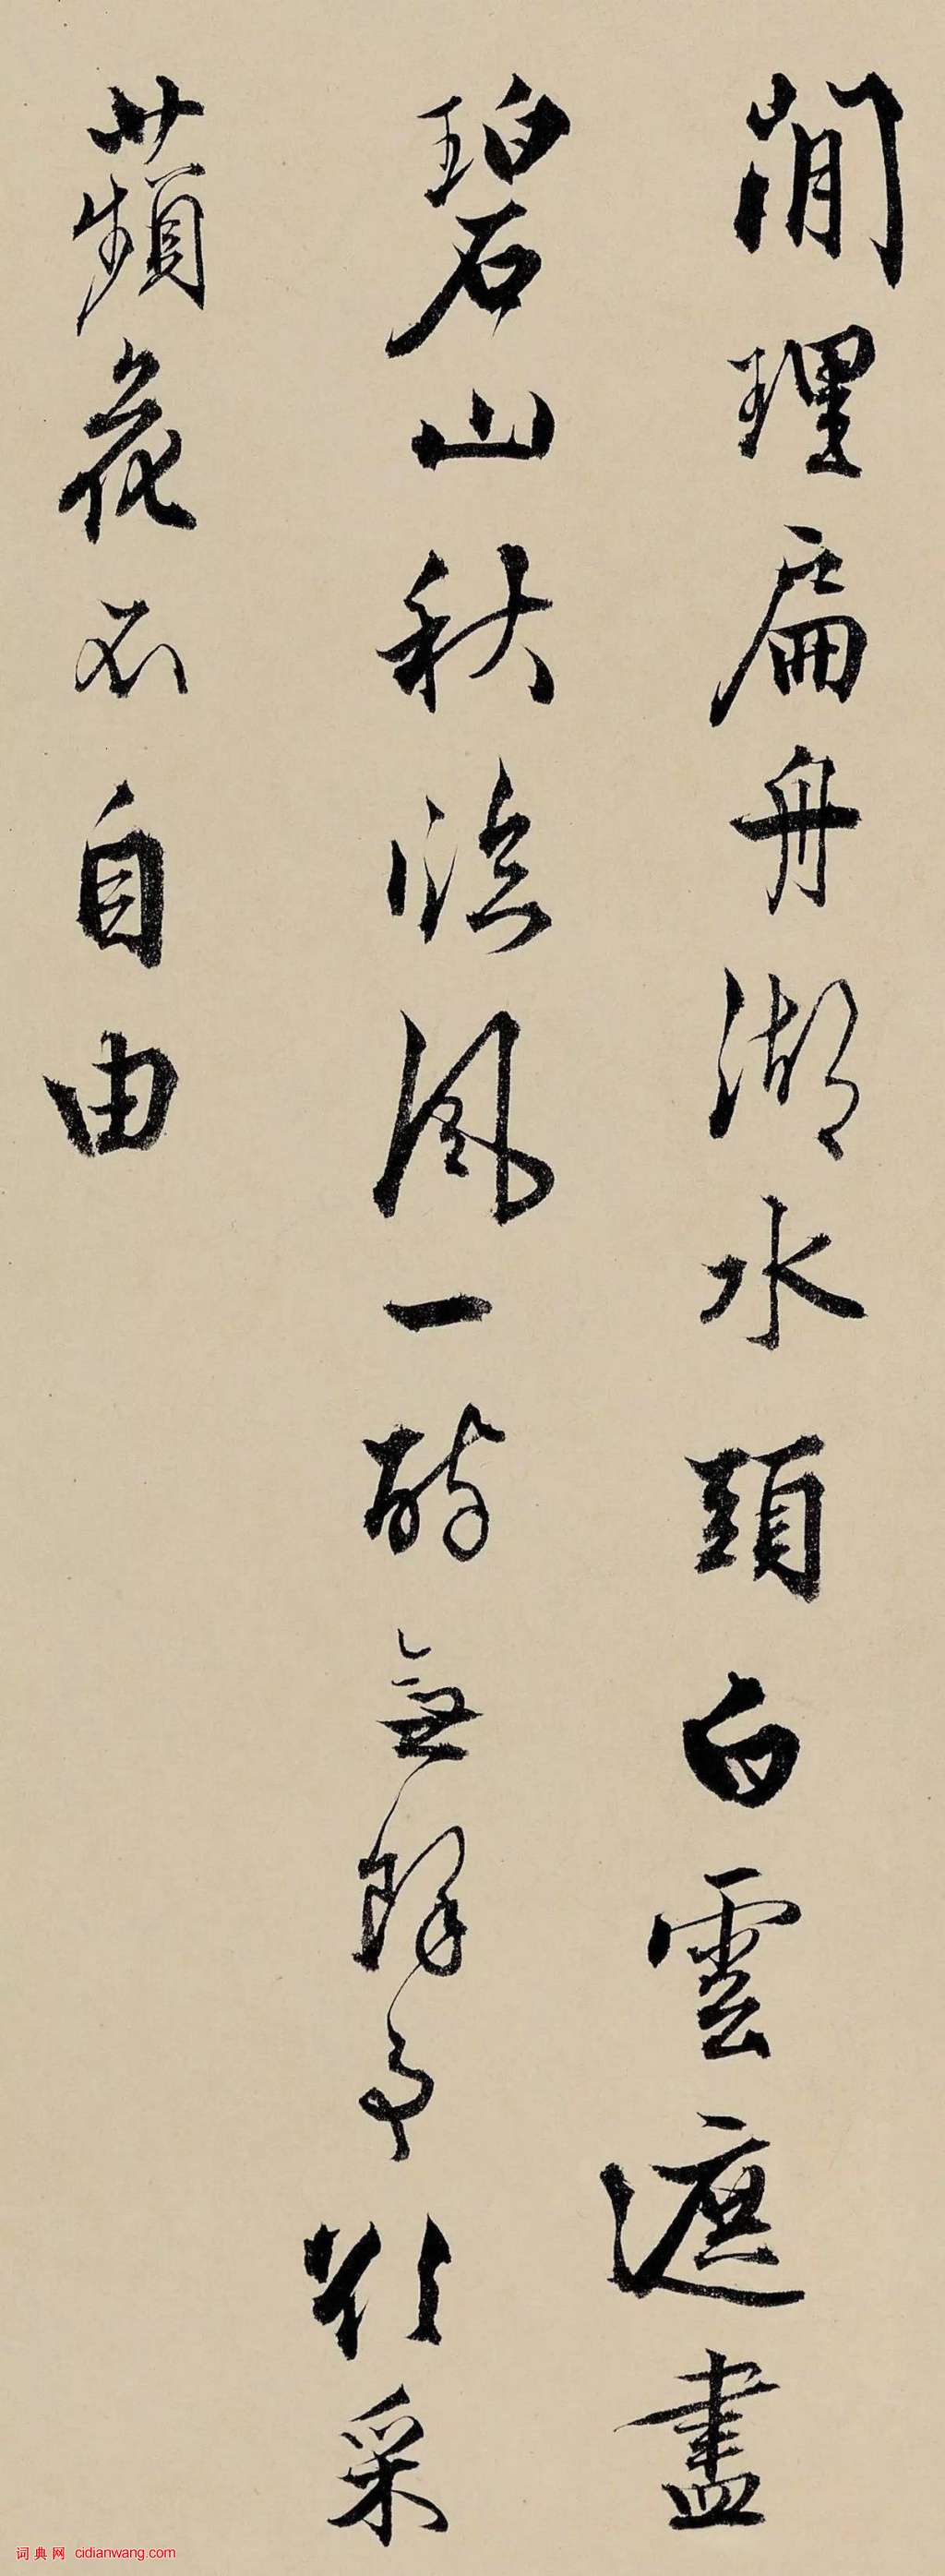 閒理扁舟湖水頭白雲遮盡
碧山秋臨風一醉無餘事欲采
蘋花不自由
词典网 cidianwang.com